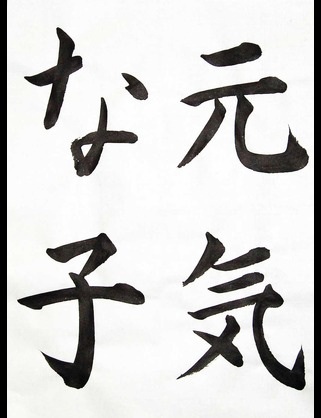 元気
な子